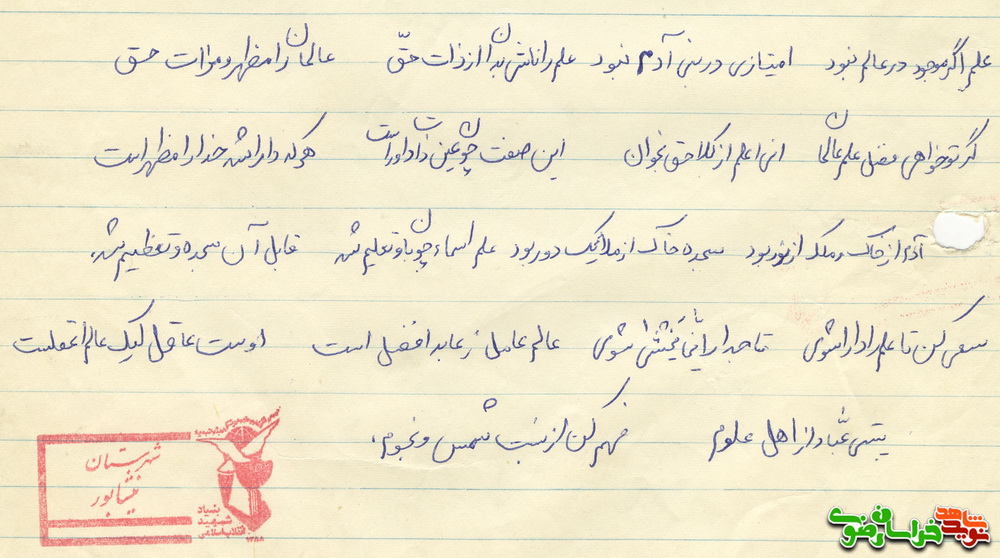 علم اگر موجود در عالم نبود امتیازی در بنی آدم نبود علم را ناشی بدان از ذات حق عالمان را مظهر و مرات حق
گر تو خواهی فضل علم عالمان انی اعلم از کلا حق بخوان این صفت چون عین ذات داور است هر که دارا شد خدا را مظهر است
آدم از خاک و ملک از نور بود سجده خاک از ملایک دور بود علم اسماء چون باو تعلیم شد قابل آن سجده و تعظیم شد
سعی کن تا علم را دارا شوی تاجدار انما یخشی شوی عالم عامل ز عابد افضل است اوست عاقل لیک عالم اعقلست
عباد از اهل علوم فهم کن از نسبت شمس و نجوم.
بنیاد شهید انقلاب اسلامی
شهرستان نیشابور
نوید شاهد خراسان رضوی